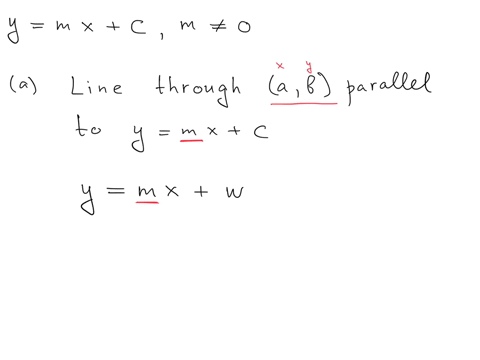 y = mx + c, m ≠ 0
x y
(a) Line through (a, b) parallel
to y = mx + c
y = mx + w